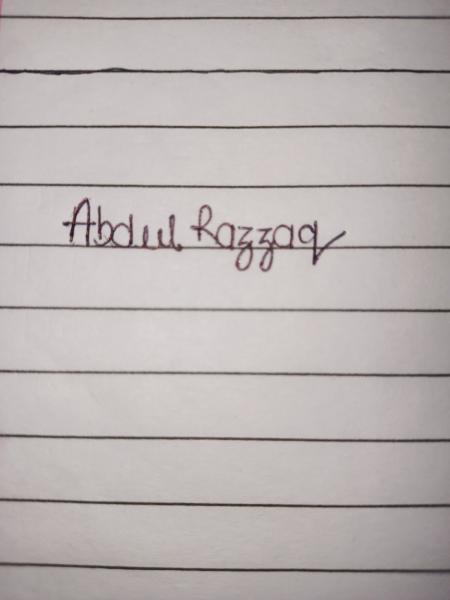 Abdul Razzaq